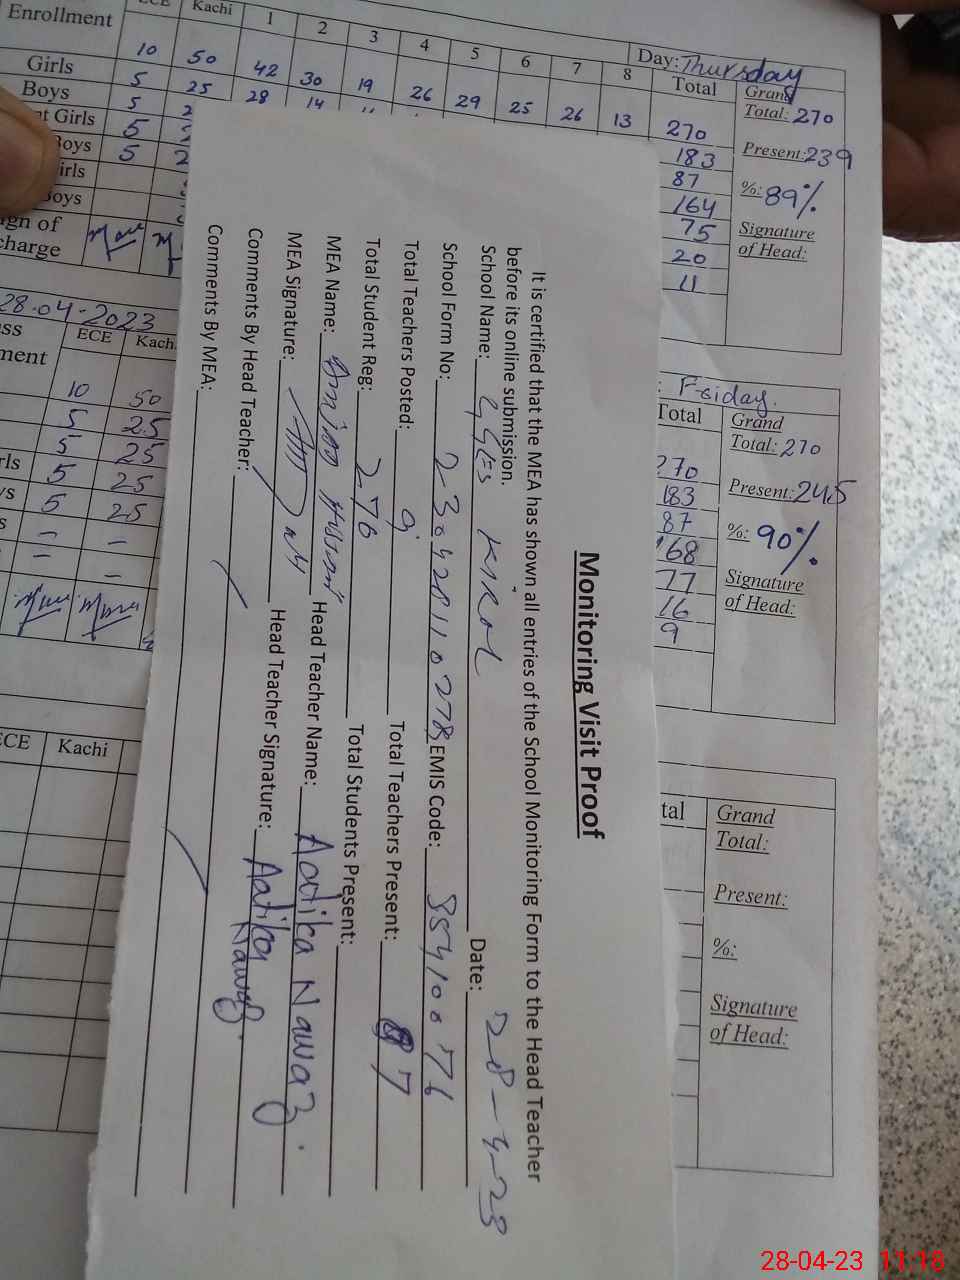 Enrollment
ECE Kachi 1 2 3 4 5 6 7 8 Total
Day: Thursday
10 50 42 30 19 26 29 25 26 13 270
Girls 5 25 28 14 183
Boys 5 87
Girls 5 164
Boys 5 75
irls 20
Boys 11
ign of
charge
Grand
Total: 270
Present: 239
%: 89%
Signature
of Head:
28-04-2023
ECE Kach
ment
10 50
5 25
5 25
5 25
5 25
Friday.
Total
270
183
87
168
77
16
9
Grand
Total: 270
Present: 245
%: 90%
Signature
of Head:
ECE Kachi
tal
Grand
Total:
Present:
%:
Signature
of Head:
Monitoring Visit Proof
It is certified that the MEA has shown all entries of the School Monitoring Form to the Head Teacher
before its online submission.
School Name: Date: 28-4-23
School Form No: EMIS Code:
Total Teachers Posted: 9 Total Teachers Present: 7
Total Student Reg: 276 Total Students Present:
MEA Name: Head Teacher Name: Aatika Nawaz.
MEA Signature: Head Teacher Signature: Aatika Nawaz.
Comments By Head Teacher:
Comments By MEA:
28-04-23 11:18